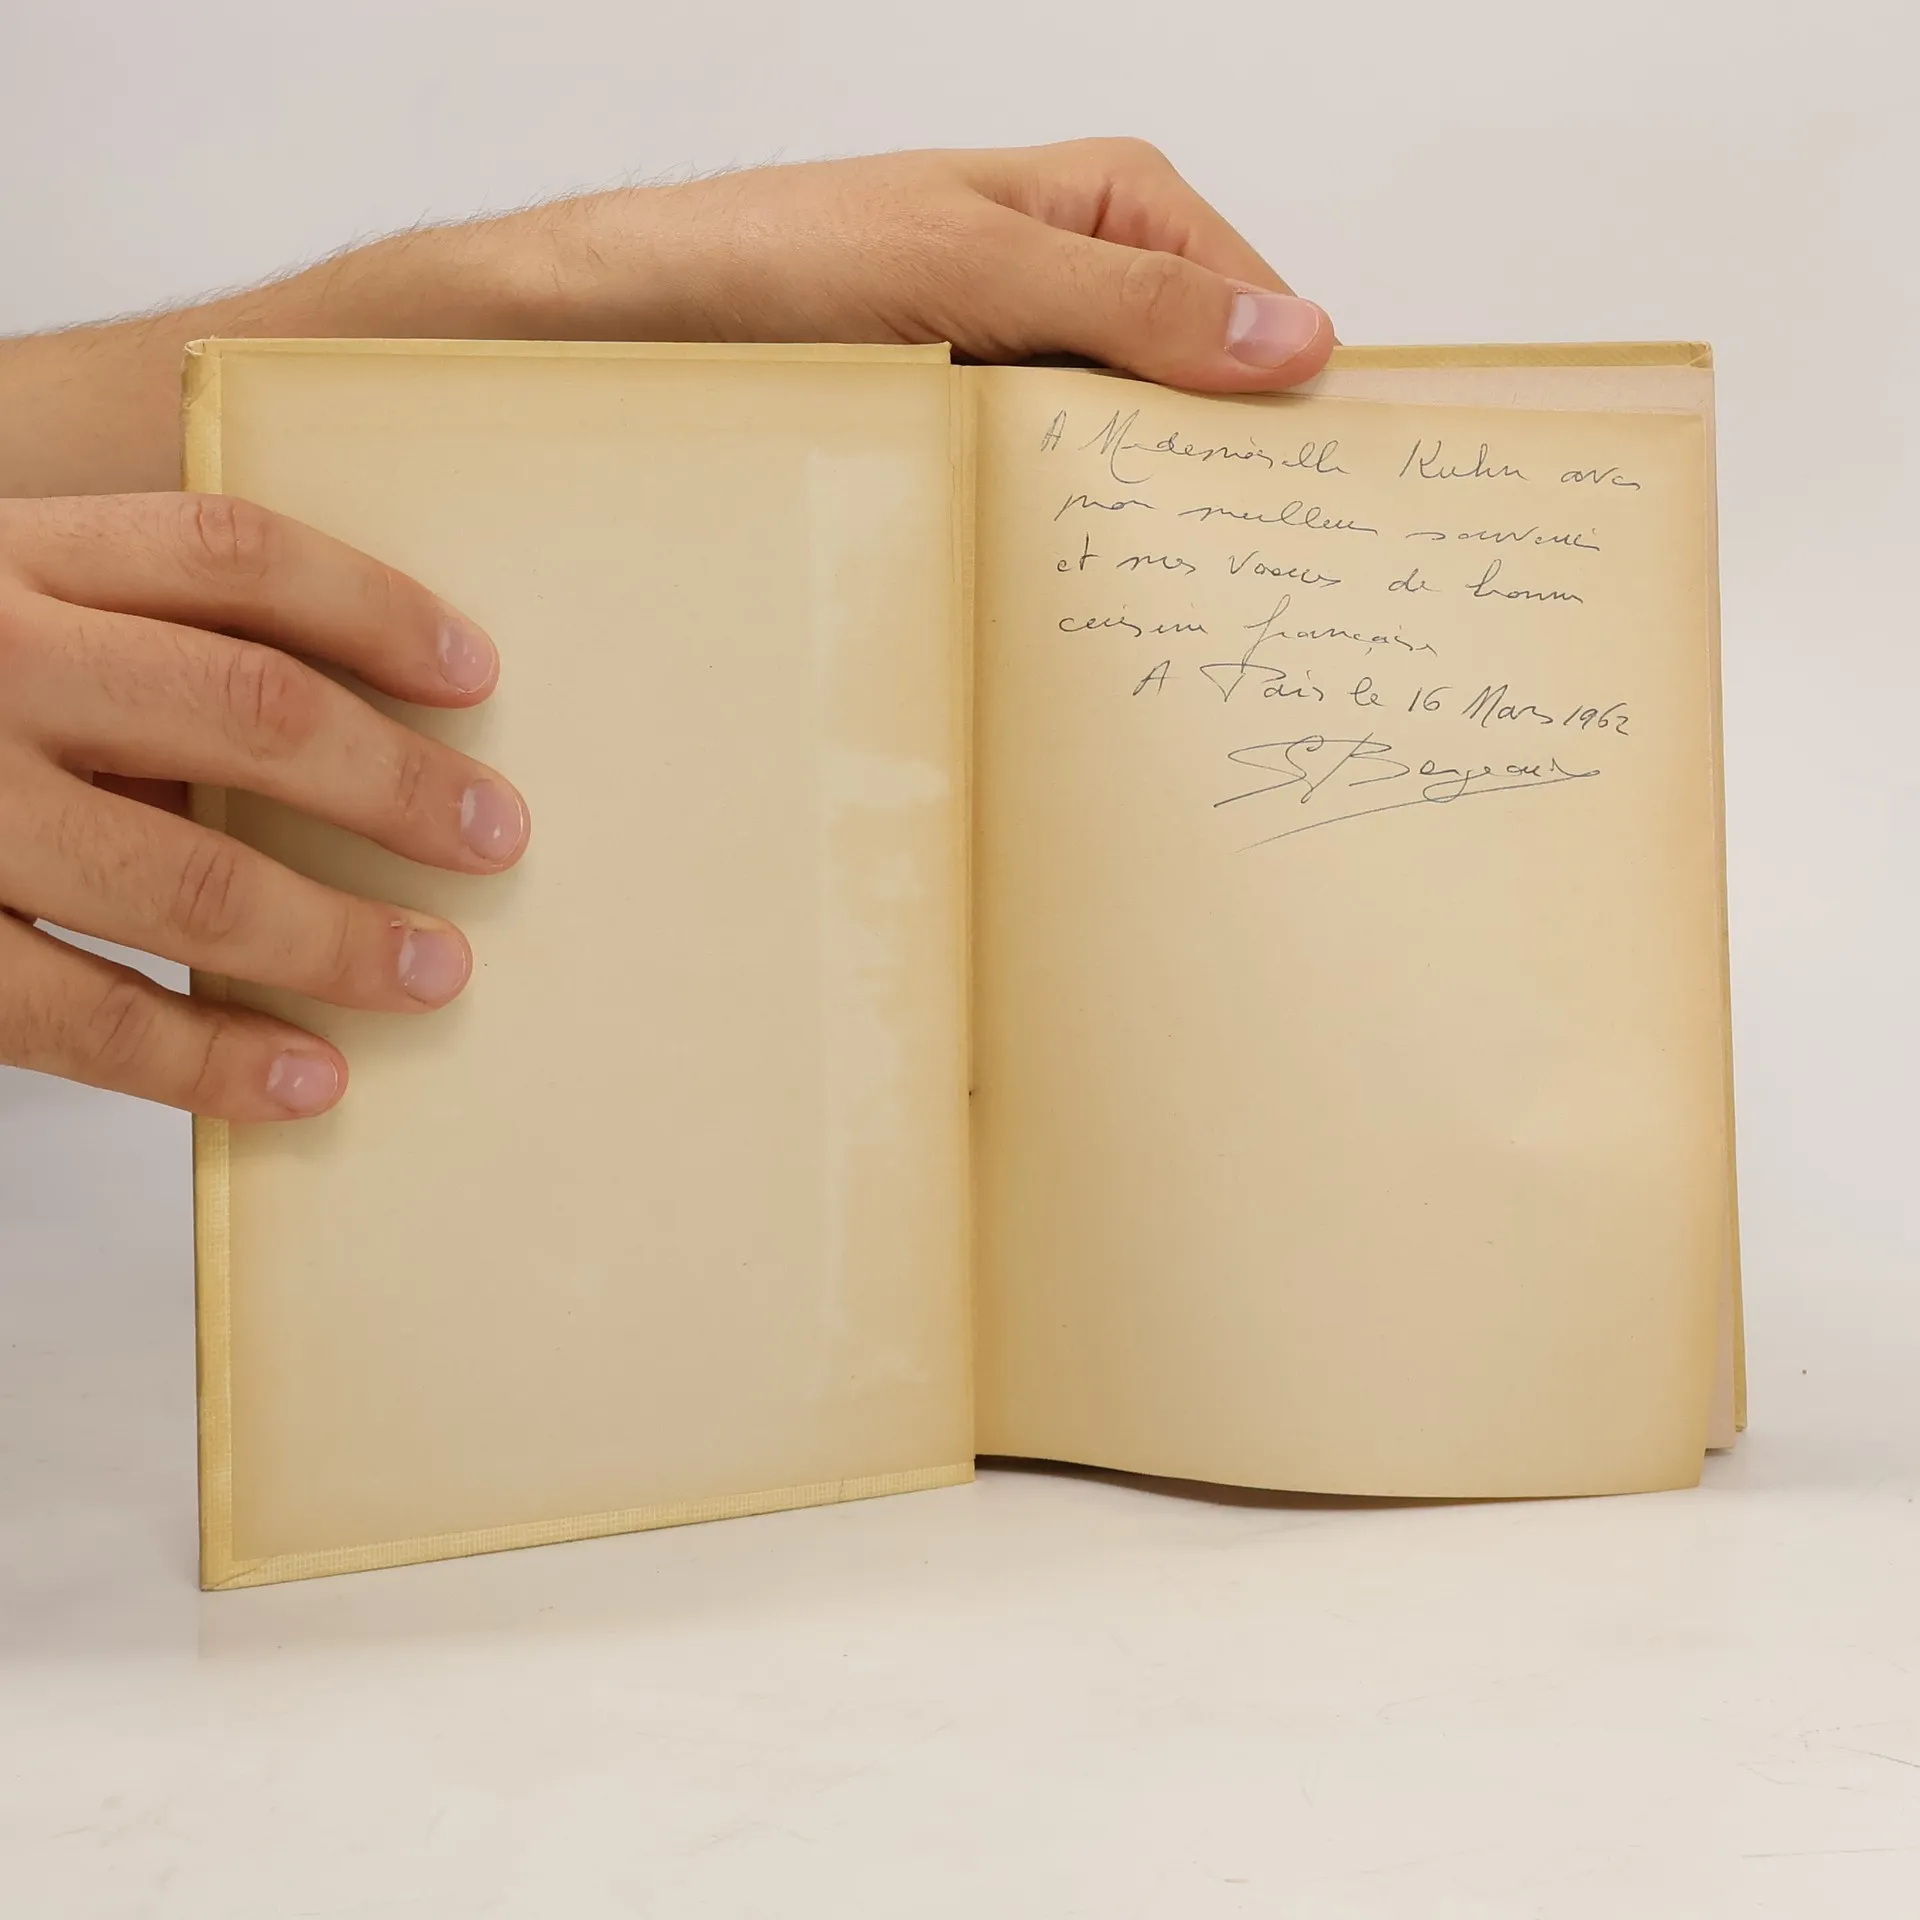 A Mademoiselle Kuhn avec
mon meilleur souvenir
et mes voeux de bonne
cuisine française
A Paris le 16 Mars 1962